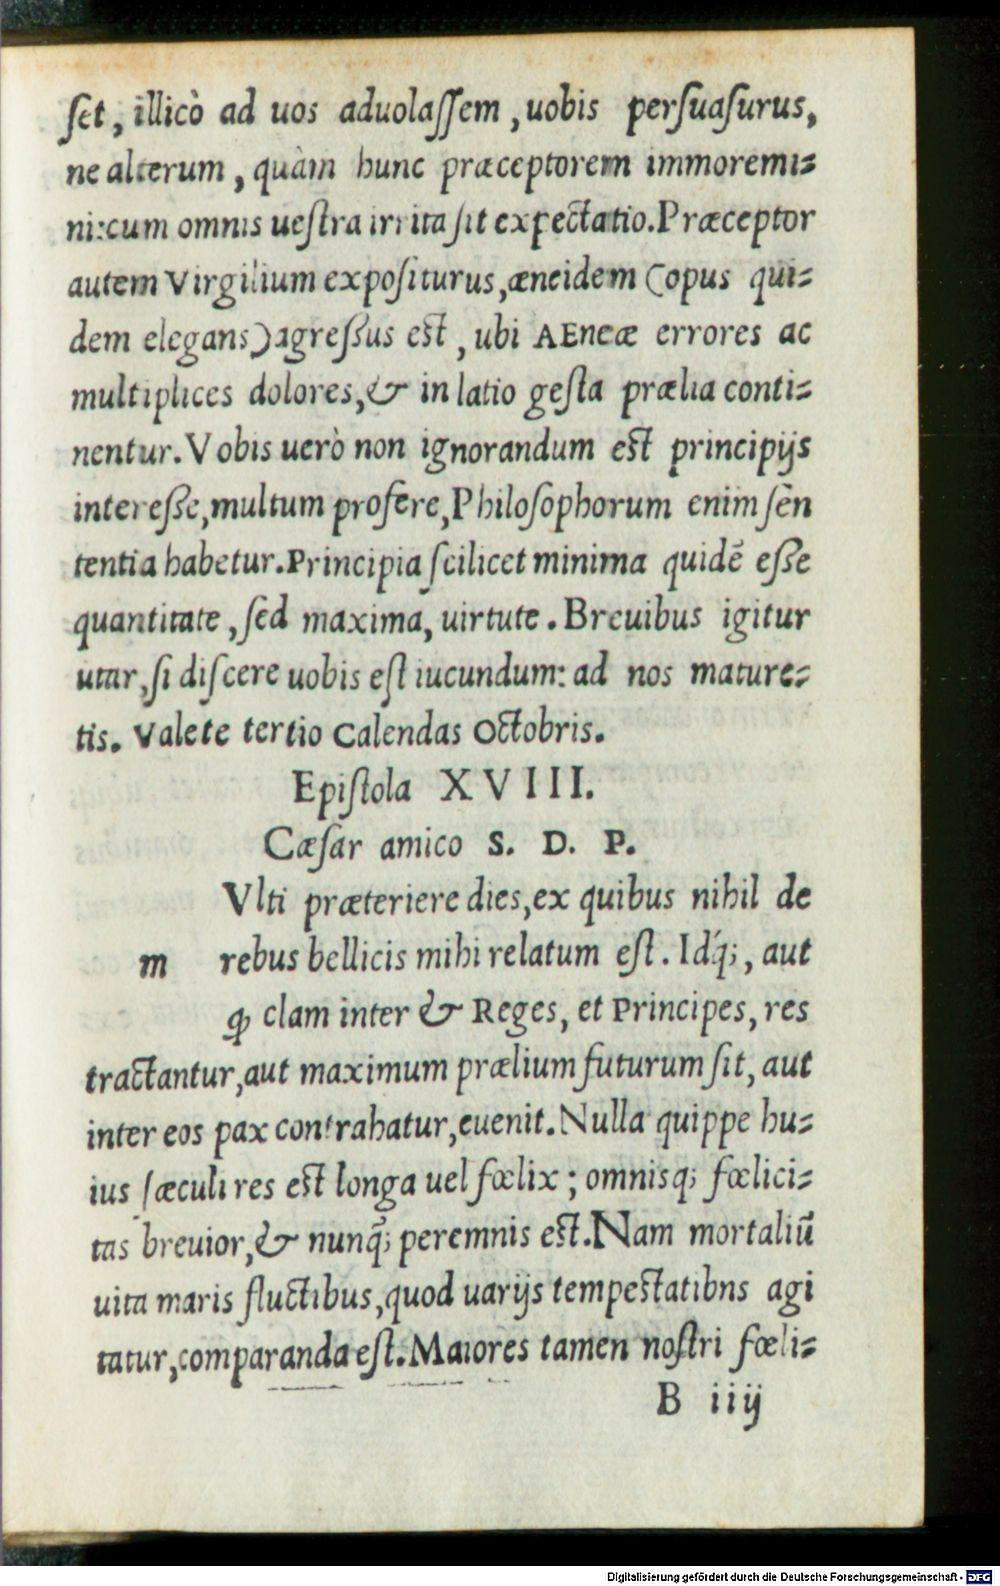 ſet, illicò ad uos aduolaſſem, uobis perſuaſurus,
ne alterum, quàm hunc præceptorem immoremi⸗
ni: cum omnis ueſtra irrita ſit expectatio. Præceptor
autem Virgilium expoſiturus, æneidem (opus qui⸗
dem elegans) agreſſus est, ubi AEneæ errores ac
multiplices dolores, & in latio geſta prælia conti⸗
nentur. Vobis uerò non ignorandum est principijs
intereſſe, multum profere, Philoſophorum enim ſen
tentia habetur. Principia ſcilicet minima quidē eſſe
quantitate, ſed maxima, uirtute. Breuibus igitur
utar, ſi diſcere uobis eſt iucundum: ad nos mature⸗
tis. Valete tertio Calendas Octobris.
Epiſtola XVIII.
Cæſar amico S. D. P.
Vlti præteriere dies, ex quibus nihil de
m rebus bellicis mihi relatum eſt. Idq́;, aut
ꝙ clam inter & Reges, et Principes, res
tractantur, aut maximum prælium futurum ſit, aut
inter eos pax contrahatur, euenit. Nulla quippe hu⸗
ius ſæculi res est longa uel fœlix; omnisq; fœlici⸗
tas breuior, & nunq̃; peremnis est. Nam mortaliū
uita maris fluctibus, quod uarijs tempestatibns agi
tatur, comparanda eſt. Maiores tamen noſtri fœli⸗
B iiij
Digitalisierung gefördert durch die Deutsche Forschungsgemeinschaft - DFG